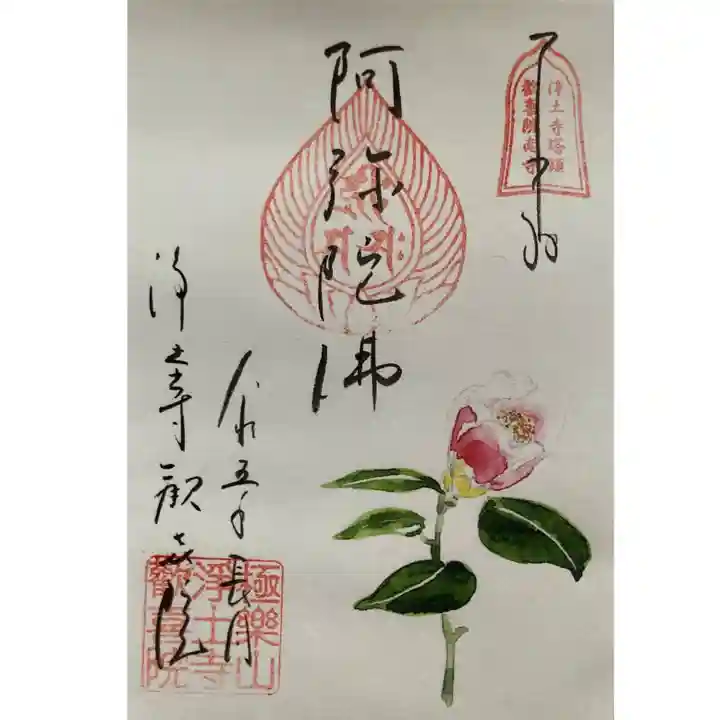 浄土寺塔頭
阿弥陀佛
令和五年長月
浄土寺歓喜院
極樂山
淨土寺
歡喜院